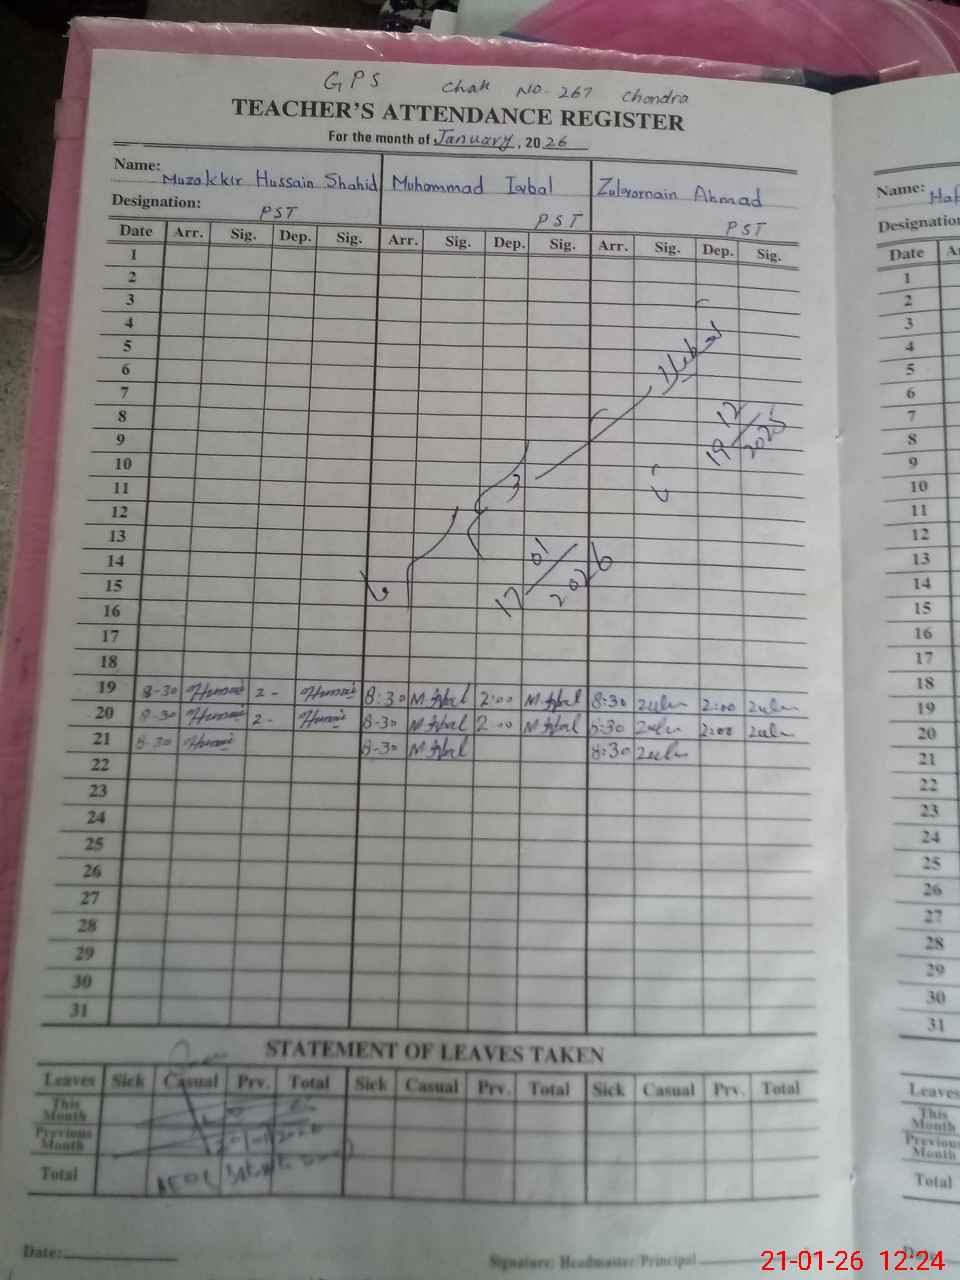 GPS Chak No. 267 Chondra
TEACHER'S ATTENDANCE REGISTER
For the month of January, 2026
Name: Muzakkir Hussain Shahid Muhammad Iqbal Zulqarnain Ahmad
Designation: PST PST PST
Date Arr. Sig. Dep. Sig. Arr. Sig. Dep. Sig. Arr. Sig. Dep. Sig.
1
2
3
4
5
6
7
8
9
10
11
12
13
14
15
16
17
18
19 8-30 2- 8:30 M. Iqbal 2:00 M. Iqbal 8:30 2:00
20 8-30 2- 8-30 M. Iqbal 2:00 M. Iqbal 8:30 2:00
21 8-30 8-30 M. Iqbal 8:30
22
23
24
25
26
27
28
29
30
31
19/12/2025
17/01/2026
STATEMENT OF LEAVES TAKEN
Leaves Sick Casual Prv. Total Sick Casual Prv. Total Sick Casual Prv. Total
This Month
Previous Month
Total
Date:
Signature: Headmaster/Principal
Name:
Designation
Date
1
2
3
4
5
6
7
8
9
10
11
12
13
14
15
16
17
18
19
20
21
22
23
24
25
26
27
28
29
30
31
Leaves
This Month
Previous Month
Total
21-01-26 12:24